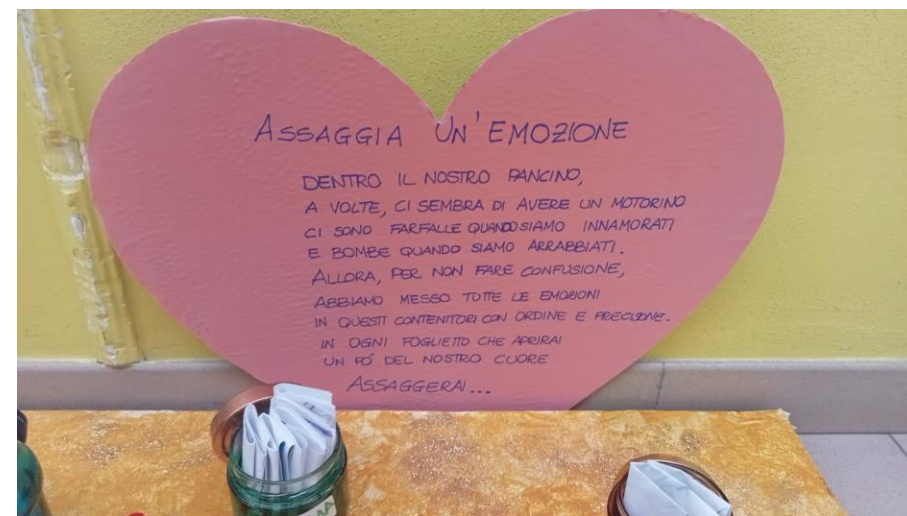 ASSAGGIA UN'EMOZIONE
DENTRO IL NOSTRO PANCINO,
A VOLTE, CI SEMBRA DI AVERE UN MOTORINO
CI SONO FARFALLE QUANDO SIAMO INNAMORATI
E BOMBE QUANDO SIAMO ARRABBIATI.
ALLORA, PER NON FARE CONFUSIONE,
ABBIAMO MESSO TUTTE LE EMOZIONI
IN QUESTI CONTENITORI CON ORDINE E PRECISIONE.
IN OGNI FOGLIETTO CHE APRIRAI
UN PÓ DEL NOSTRO CUORE
ASSAGGERAI...